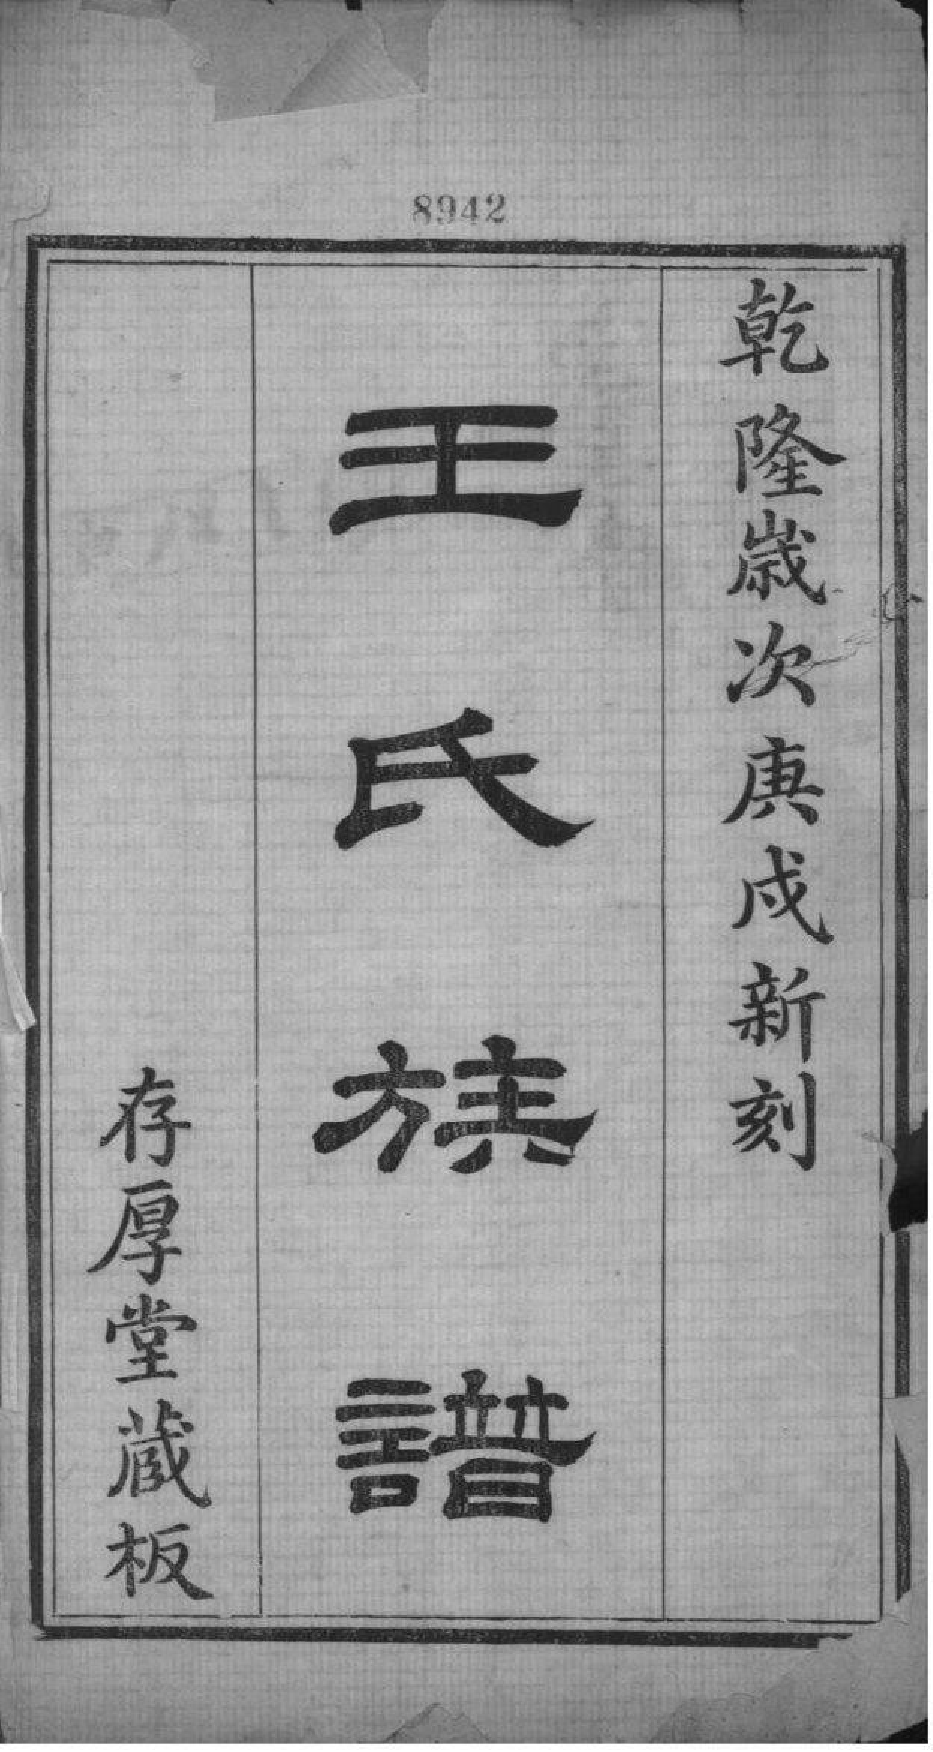 8942
乾隆歳次庚戌新刻
王氏族譜
存厚堂藏板